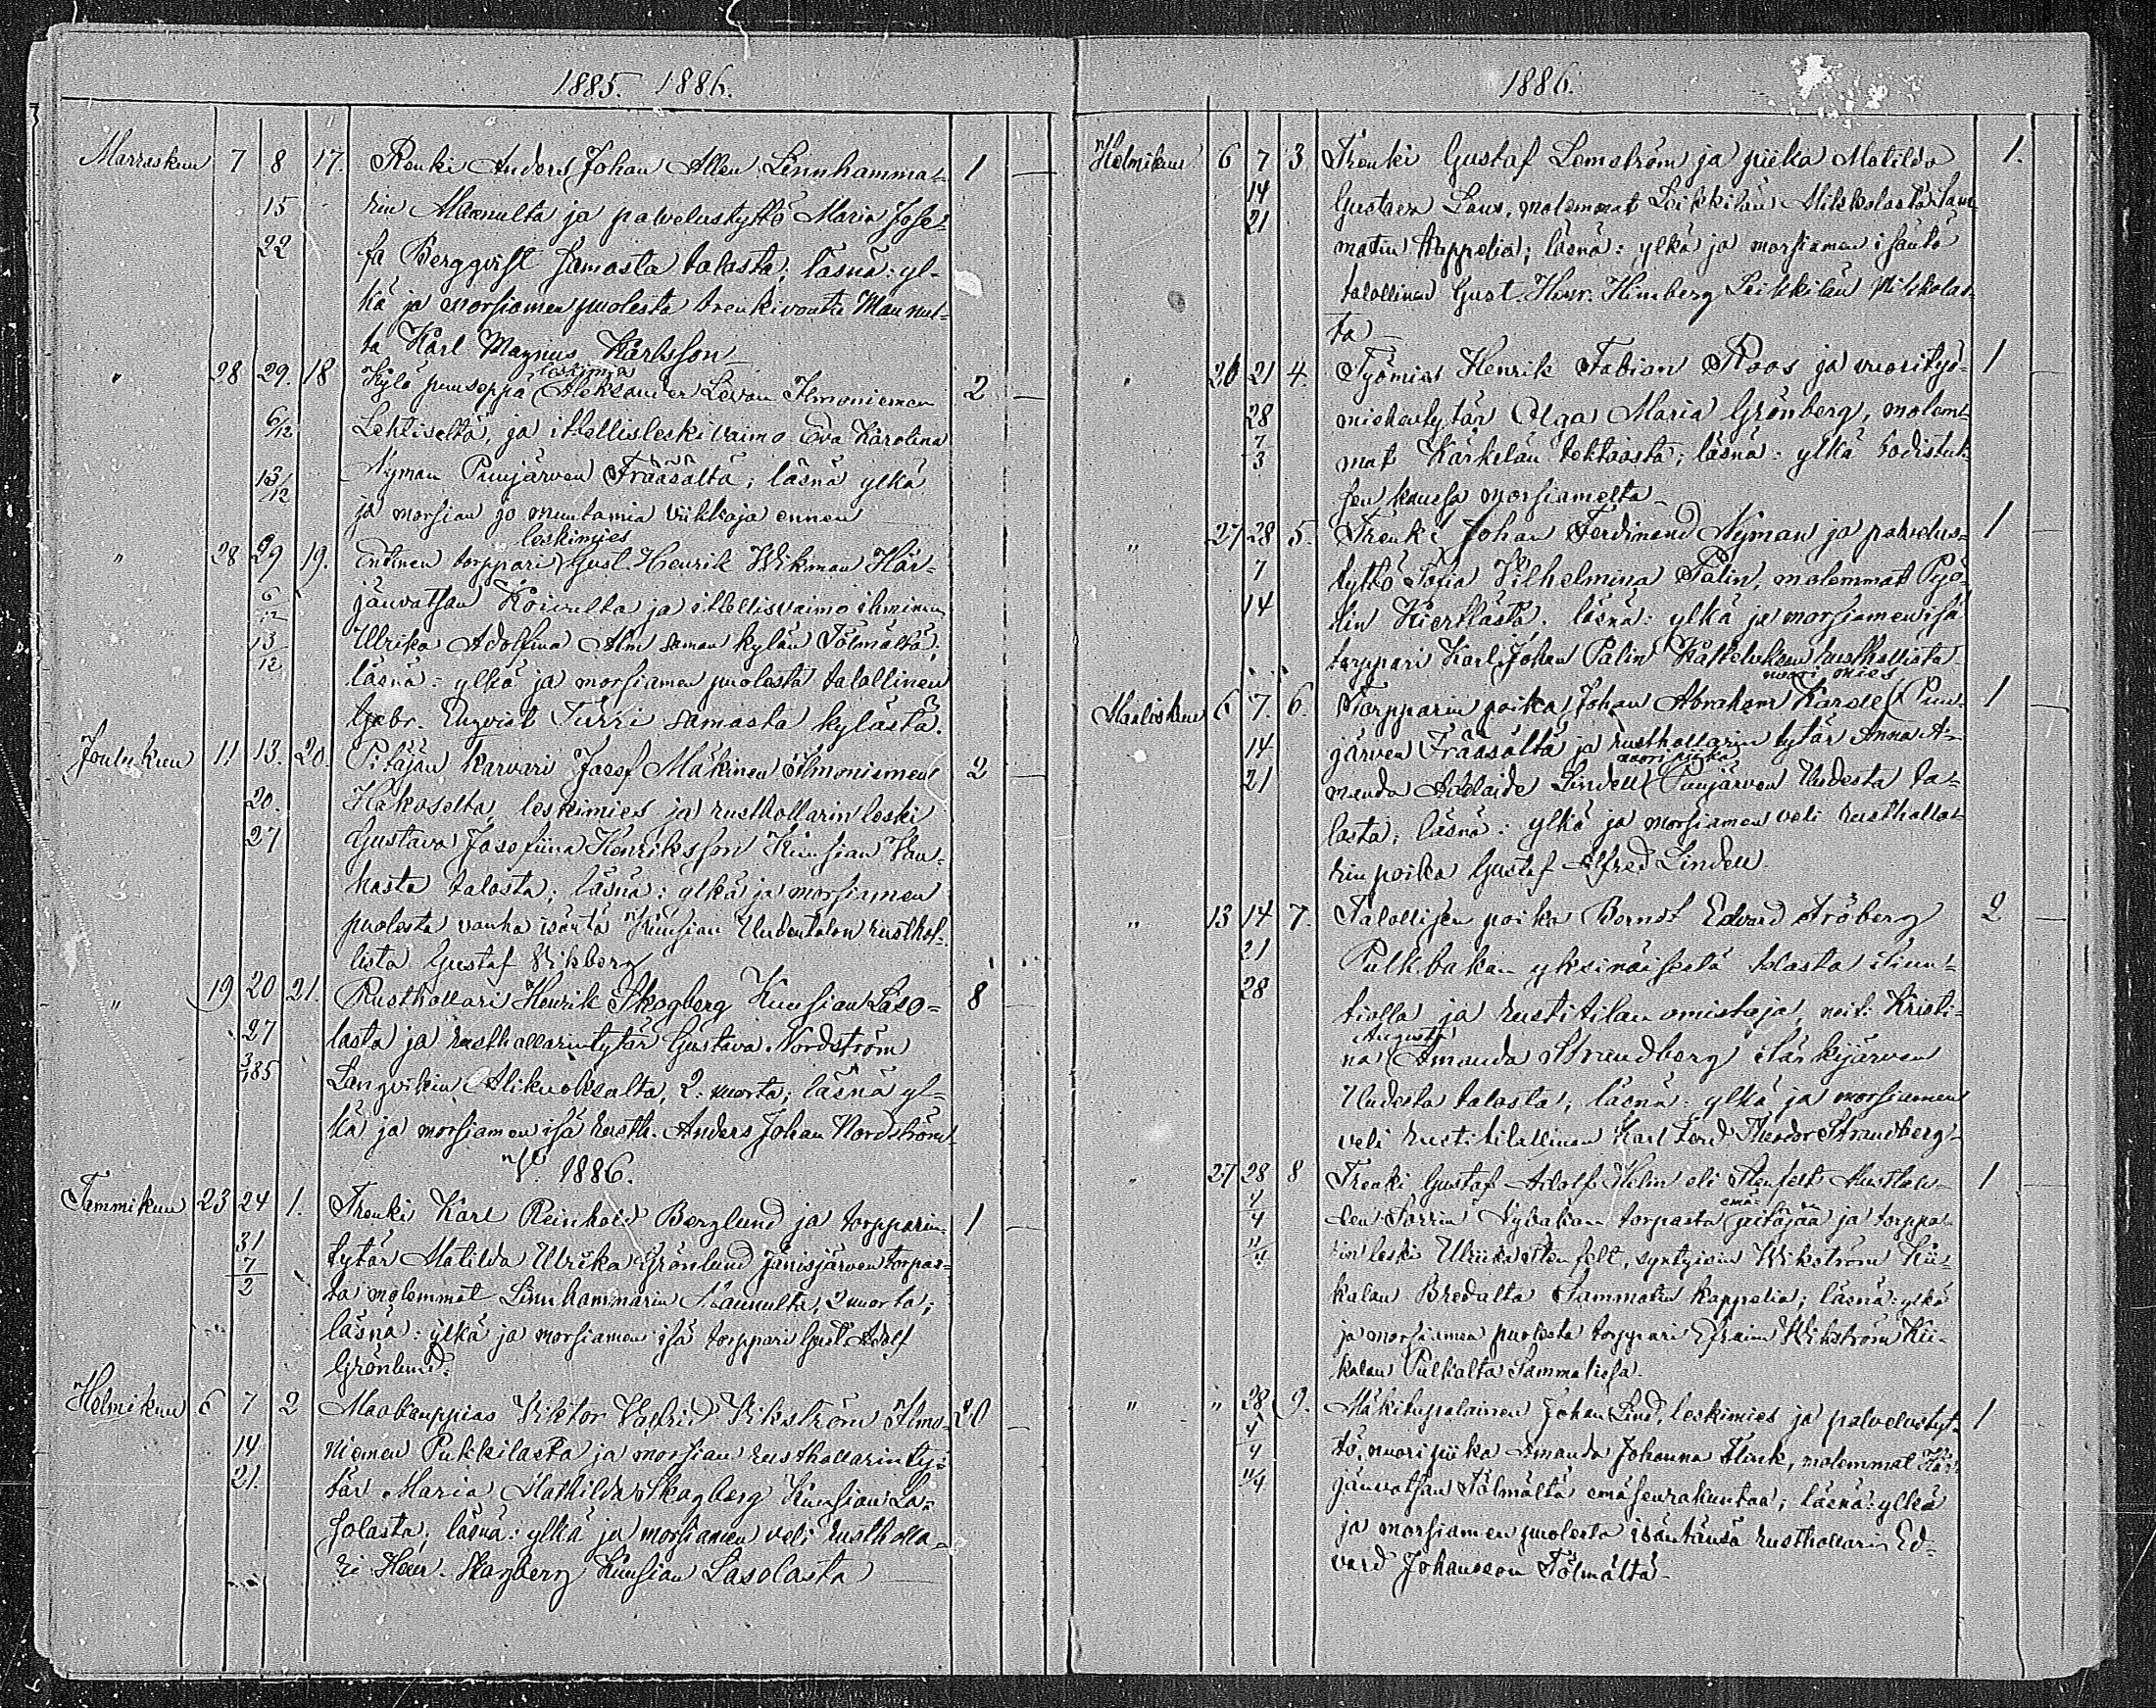 1885. 1886.
Marraskuu 7 8 17. Renki Anders Johan Allen Linnhamma- 1
15 rin Maunulta ja palvelustyttö Maria Jose-
22 fa Bergqvist samasta talosta; läsnä: yl-
kä ja morsiamen puolesta trenkivouti Maunul-
ta Karl Magnus Karlsson
leskimies
" 28 29. 18 Kylä puuseppä Aleksander Levan Ilmoniemen 2
6/12 Lehtiseltä, ja itsellisleskivaimo Eva Karolina
13/12 Nyman Puujärven Frääsältä; läsnä ylkä
ja morsian jo muutamia viikkoja ennen
leskimies
" 28 29 19. Entinen torppari Gust. Henrik Wikman Här-
6/12 jänvatsan Koivulta ja itsellisvaimo ihminen
13/12 Ulrika Adolfina Alm saman kylän Tölmältä;
läsnä: ylkä ja morsiamen puolesta talollinen
Gabr. Enqvist Turri samasta kylästä.
Joulukuu 11 13. 20. Pitäjän karvari Josef Mäkinen Ilmoniemen 2
20. Hakoselta, leskimies ja rusthollarin leski
27 Gustava Josefiina Henriksson Kuusian Van-
hasta talosta; läsnä: ylkä ja morsiamen
puolesta vanha isäntä Kuusian Uudentalon rusthol-
lista Gustaf Vikberg
" 19 20 21. Rusthollari Henrik Skogberg Kuusian Laso- 8
27 lasta ja rusthollarintytär Gustava Nordström
3/1 85 Langvikin Alikuoksalta, 2. vuorta; läsnä yl-
kä ja morsiamen isä rusth. Anders Johan Nordström
V. 1886.
Tammikuu 23 24 1. Trenki Karl Reinhold Berglund ja torpparin- 1
31 tytär Matilda Ulrika Grönlund Jänisjärven torpas-
7/2 ta molemmat Linnhammarin Maunulta, 2 vuorta;
läsnä: ylkä ja morsiamen isä torppari Gust Adolf
Grönlund.
Helmikuu 6 7 2 Maakauppias Viktor Valfrid Vikström Ilmo- 20
14 niemen Pukkilasta ja morsian rusthollarinty-
21. tär Maria Mathilda Skogberg Kuusian La-
solasta; läsnä: ylkä ja morsiamen veli rustholla-
ri Henr. Skogberg Kuusian Lasolasta
1886.
Helmikuu 6 7 3 Trenki Gustaf Lemström ja piika Matilda 1.
14 Gustava Laus, molemmat Leikkilän Mikkolasta Sam-
21 matin kappelia; läsnä: ylkä ja morsiamen isäntä
talollinen Gust. Henr. Himberg Leikkilän Mikkolas-
ta
" 20 21 4. Työmies Henrik Fabian Roos ja vuorityö- 1
28 miehentytär Olga Maria Grönberg, molem-
7/3 mat Kärkelän tehtaasta; läsnä: ylkä todistuk-
sen kanssa morsiamelta
" 27 28 5. Trenki Johan Ferdinand Nyman ja palvelus- 1
7 tyttö Sofia Vilhelmina Palin, molemmat Pyö-
14 lin Kierlästä. läsnä: ylkä ja morsiamen isä
torppari Karl Johan Palin Kattelukseen rusthollista
nuori mies
Maaliskuu 6 7. 6. Torpparin poika Johan Abraham Karsel Puu- 1
" 14 järven Frääsältä ja rusthollarin tytär Anna A-
nuori piika
21 manda Adelaide Lindell Puujärven Uudesta ta-
losta; läsnä: ylkä ja morsiamen veli rustholla-
rin poika Gustaf Alfred Lindell
" 13 14 7. Talollisen poika Berndt Edvard Fröberg 2
21 Pulkbakan yksinäisestä talosta
28 tiolla ja rustitilan omistaja, neiti Kristi-
Augusta
na Amanda Strandberg Särkijärven
Uudesta talosta; läsnä: ylkä ja morsiamen
veli rustitilallinen Karl Ferd Theodor Strandberg
" 27 28 8 Trenki Gustaf Adolf Helin eli Stenfelt 1
emä
4/4 torpasta pitäjää ja torppa-
11/4 rin leski Ulriika Stenfelt, syntyisin Wikström Kii-
kalan Bredalta Sammatin kappelia; läsnä: ylkä
ja morsiamen puolesta torppari Efraim Wikström Kii-
kalan Pulkalta Sammatissa.
" " 28 9. Mäkitupalainen Johan Lind, leskimies ja palvelustyt- 1
4/4 tö, nuori piika Amanda Johanna Flink, molemmat Här-
11/4 jänvatsan Tölmältä emäseurakuntaa; läsnä: ylkä
ja morsiamen puolesta isäntänsä rusthollari Ed-
vard Johansson Tölmältä